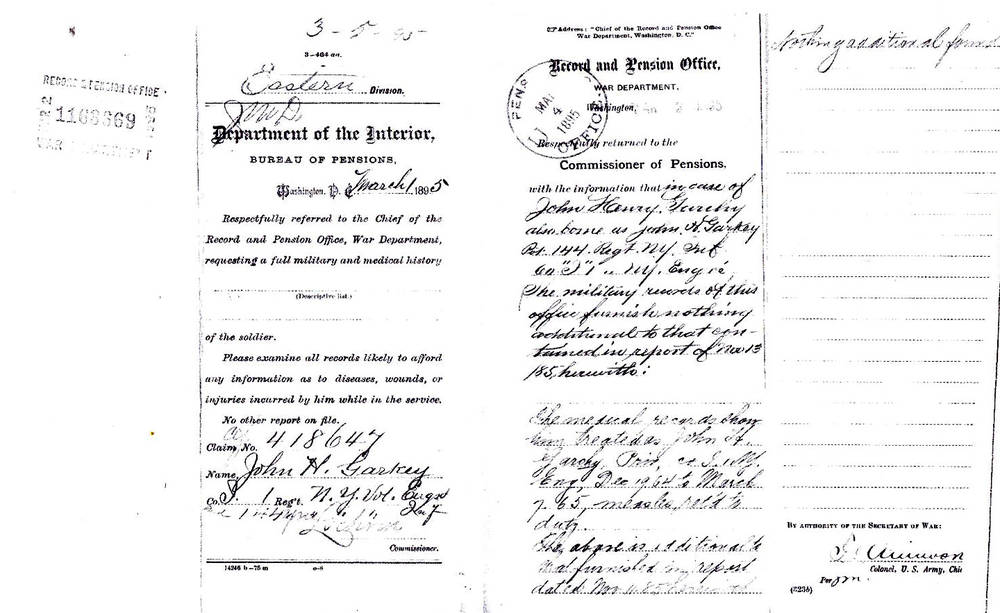 3-5-95
3-464 aa.
Eastern Division.
Department of the Interior,
BUREAU OF PENSIONS,
Washington, D. C. March 1, 1895
Respectfully referred to the Chief of the
Record and Pension Office, War Department,
requesting a full military and medical history
(Descriptive list.)
of the soldier.
Please examine all records likely to afford
any information as to diseases, wounds, or
injuries incurred by him while in the service.
No other report on file.
Claim, No. 418647
Name, John H. Garkey
Co. I. 1 Reg't N.Y. Vol. Engrs
144
Commissioner.
14246 b-75 m o-8
RECORD & PENSION OFFICE
1168369
WAR DEPARTMENT
Address: "Chief of the Record and Pension Office
War Department, Washington, D. C."
Record and Pension Office,
WAR DEPARTMENT,
Washington, 1895
PENS. OFFICE
MAR
4
1895
Respectfully returned to the
Commissioner of Pensions,
with the information that in case of
John Henry
also borne as John H. Garkey
Pvt 144 Regt NY Inf
Co "I" 1" NY. Eng
The military records of this
office furnish nothing
additional to that con-
tained in report of Nov 13
185, herewith:
The medical records show
him treated as John H.
Garchy, Priv, Co I. 1 NY.
Eng. Dec 1964 to March
7 65, measles, ret'd to
duty.
The above is additional to
that furnished in report
dated Nov 11 85
Nothing additional found
BY AUTHORITY OF THE SECRETARY OF WAR:
Colonel, U. S. Army, Chie
Per
(523b)